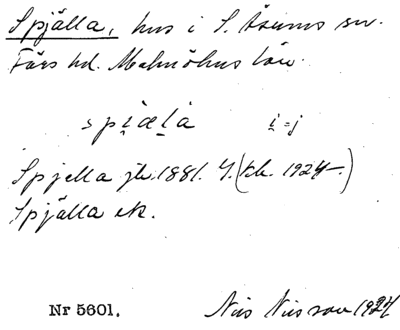 Spjälla, hus i S. Åsums sn.
Färs hd. Malmöhus län.
spiæla i=j
Spjella jb. 1881. 4. (Ek. 1924.)
Spjälla ek.
Nr 5601. Nils Nilsson 1924